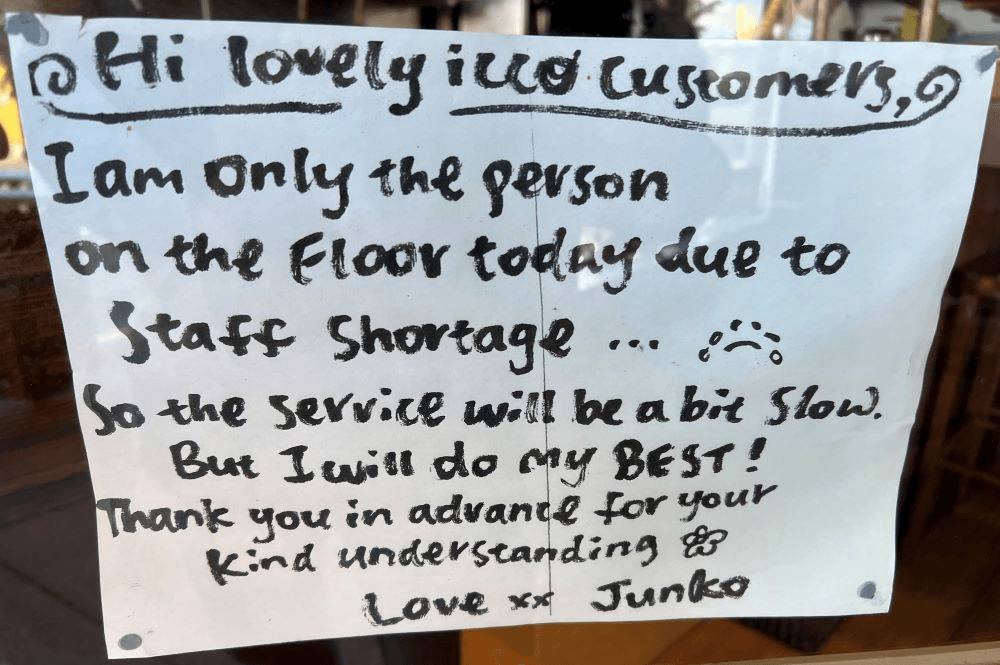 Hi lovely icco customers,
I am only the person
on the Floor today due to
Staff Shortage ...
So the service will be a bit Slow.
But I will do my BEST!
Thank you in advance for your
kind understanding
Love xx Junko